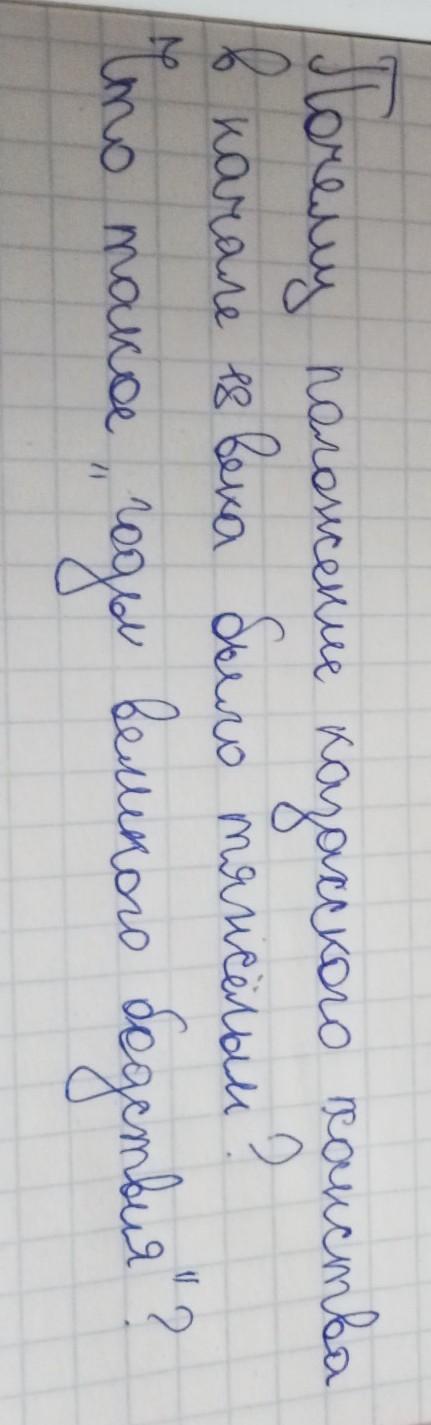 Почему положение казахского ханства
в начале 18 века было тяжёлым?
Что такое "годы великого бедствия"?